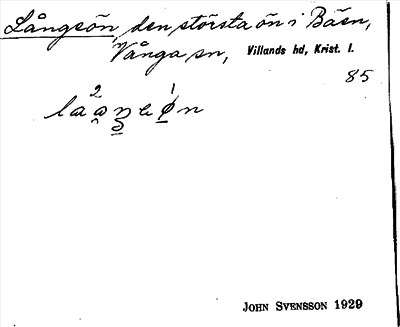 Långeön, den största ön i Bäen,
Vånga sn, Villands hd, Krist. l.
85
JOHN SVENSSON 1929